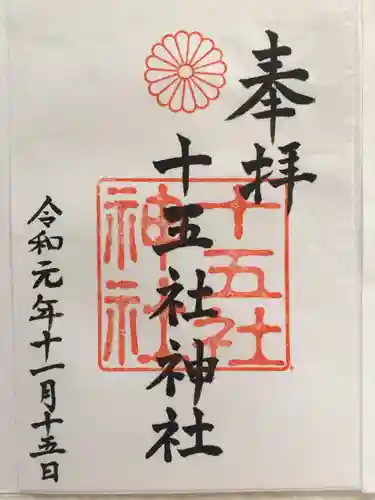 奉拝
十五社神社
十五社
神社
令和元年十一月十五日